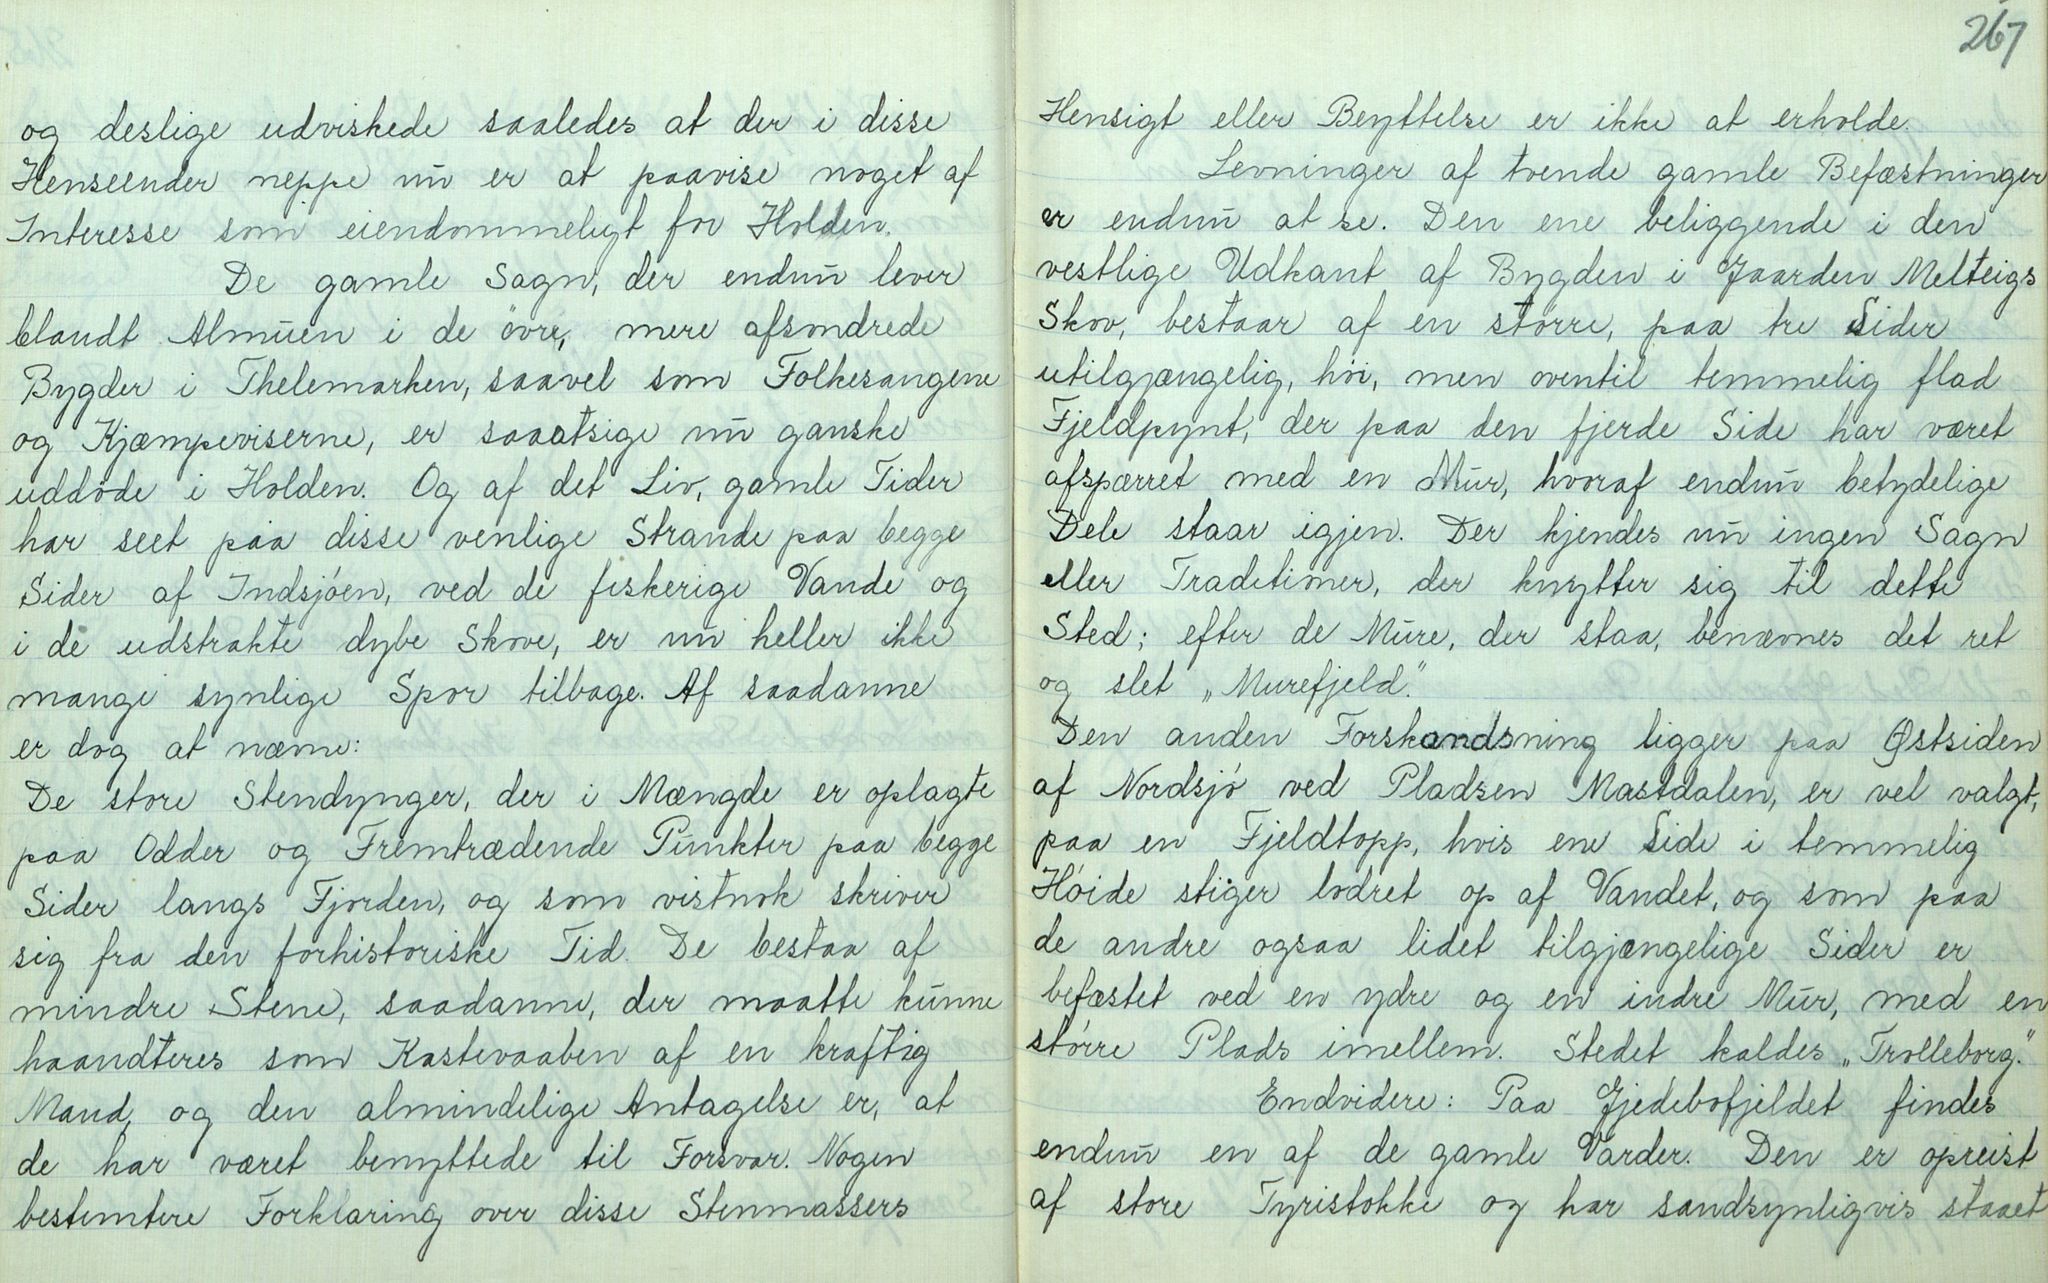 og deslige udviskede saaledes at der i disse
Henseender neppe nu er at paavise noget af
Interesse som eiendommeligt for Holden.
De gamle Sagn, der endnu lever
blandt Almuen i de øvre, mere afsondrede
Bygder i Thelemarken, saavel som Folkesangene
og Kjæmpeviserne, er saaatsige nu ganske
uddøde i Holden. Og af det Liv, gamle Tider
har seet paa disse venlige Strande paa begge
Sider af Indsjøen, ved de fiskerige Vande og
i de udstrakte dybe Skove, er nu heller ikke
mange synlige Spor tilbage. Af saadanne
er dog at nævne:
De store Stendynger, der i Mængde er oplagte
paa Odder og Fremtrædende Punkter paa begge
Sider langs Fjorden, og som vistnok skriver
sig fra den forhistoriske Tid. De bestaa af
mindre Stene, saadanne, der maatte kunne
haandteres som Kastevaaben af en kraftig
Mand, og den almindelige Antagelse er, at
de har været benyttede til Forsvar. Nogen
bestemtere Forklaring over disse Stenmassers
267
Hensigt eller Benyttelse er ikke at erholde.
Levninger af tvende gamle Befæstninger
er endnu at se. Den ene beliggende i den
vestlige Udkant af Bygden i Gaarden Melteigs
Skov, bestaar af en større, paa tre Sider
utilgjængelig, høi, men oventil temmelig flad
Fjeldpynt, der paa den fjerde Side har været
afspærret med en Mur, hvoraf endnu betydelige
Dele staar igjen. Der kjendes nu ingen Sagn
eller Traditioner, der knytter sig til dette
Sted; efter de Mure, der staa, benævnes det ret
og slet „Murefjeld."
Den anden Forskandsning ligger paa Østsiden
af Nordsjø ved Pladsen Mastdalen, er vel valgt,
paa en Fjeldtopp, hvis ene Side i temmelig
Høide stiger lodret op af Vandet, og som paa
de andre ogsaa lidet tilgjængelige Sider er
befæstet ved en ydre og en indre Mur, med en
større Plads imellem. Stedet kaldes „Trolleborg."
Endvidere: Paa Gjedebofjeldet findes
endnu en af de gamle Varder. Den er opreist
af store Tyristokke og har sandsynligvis staaet